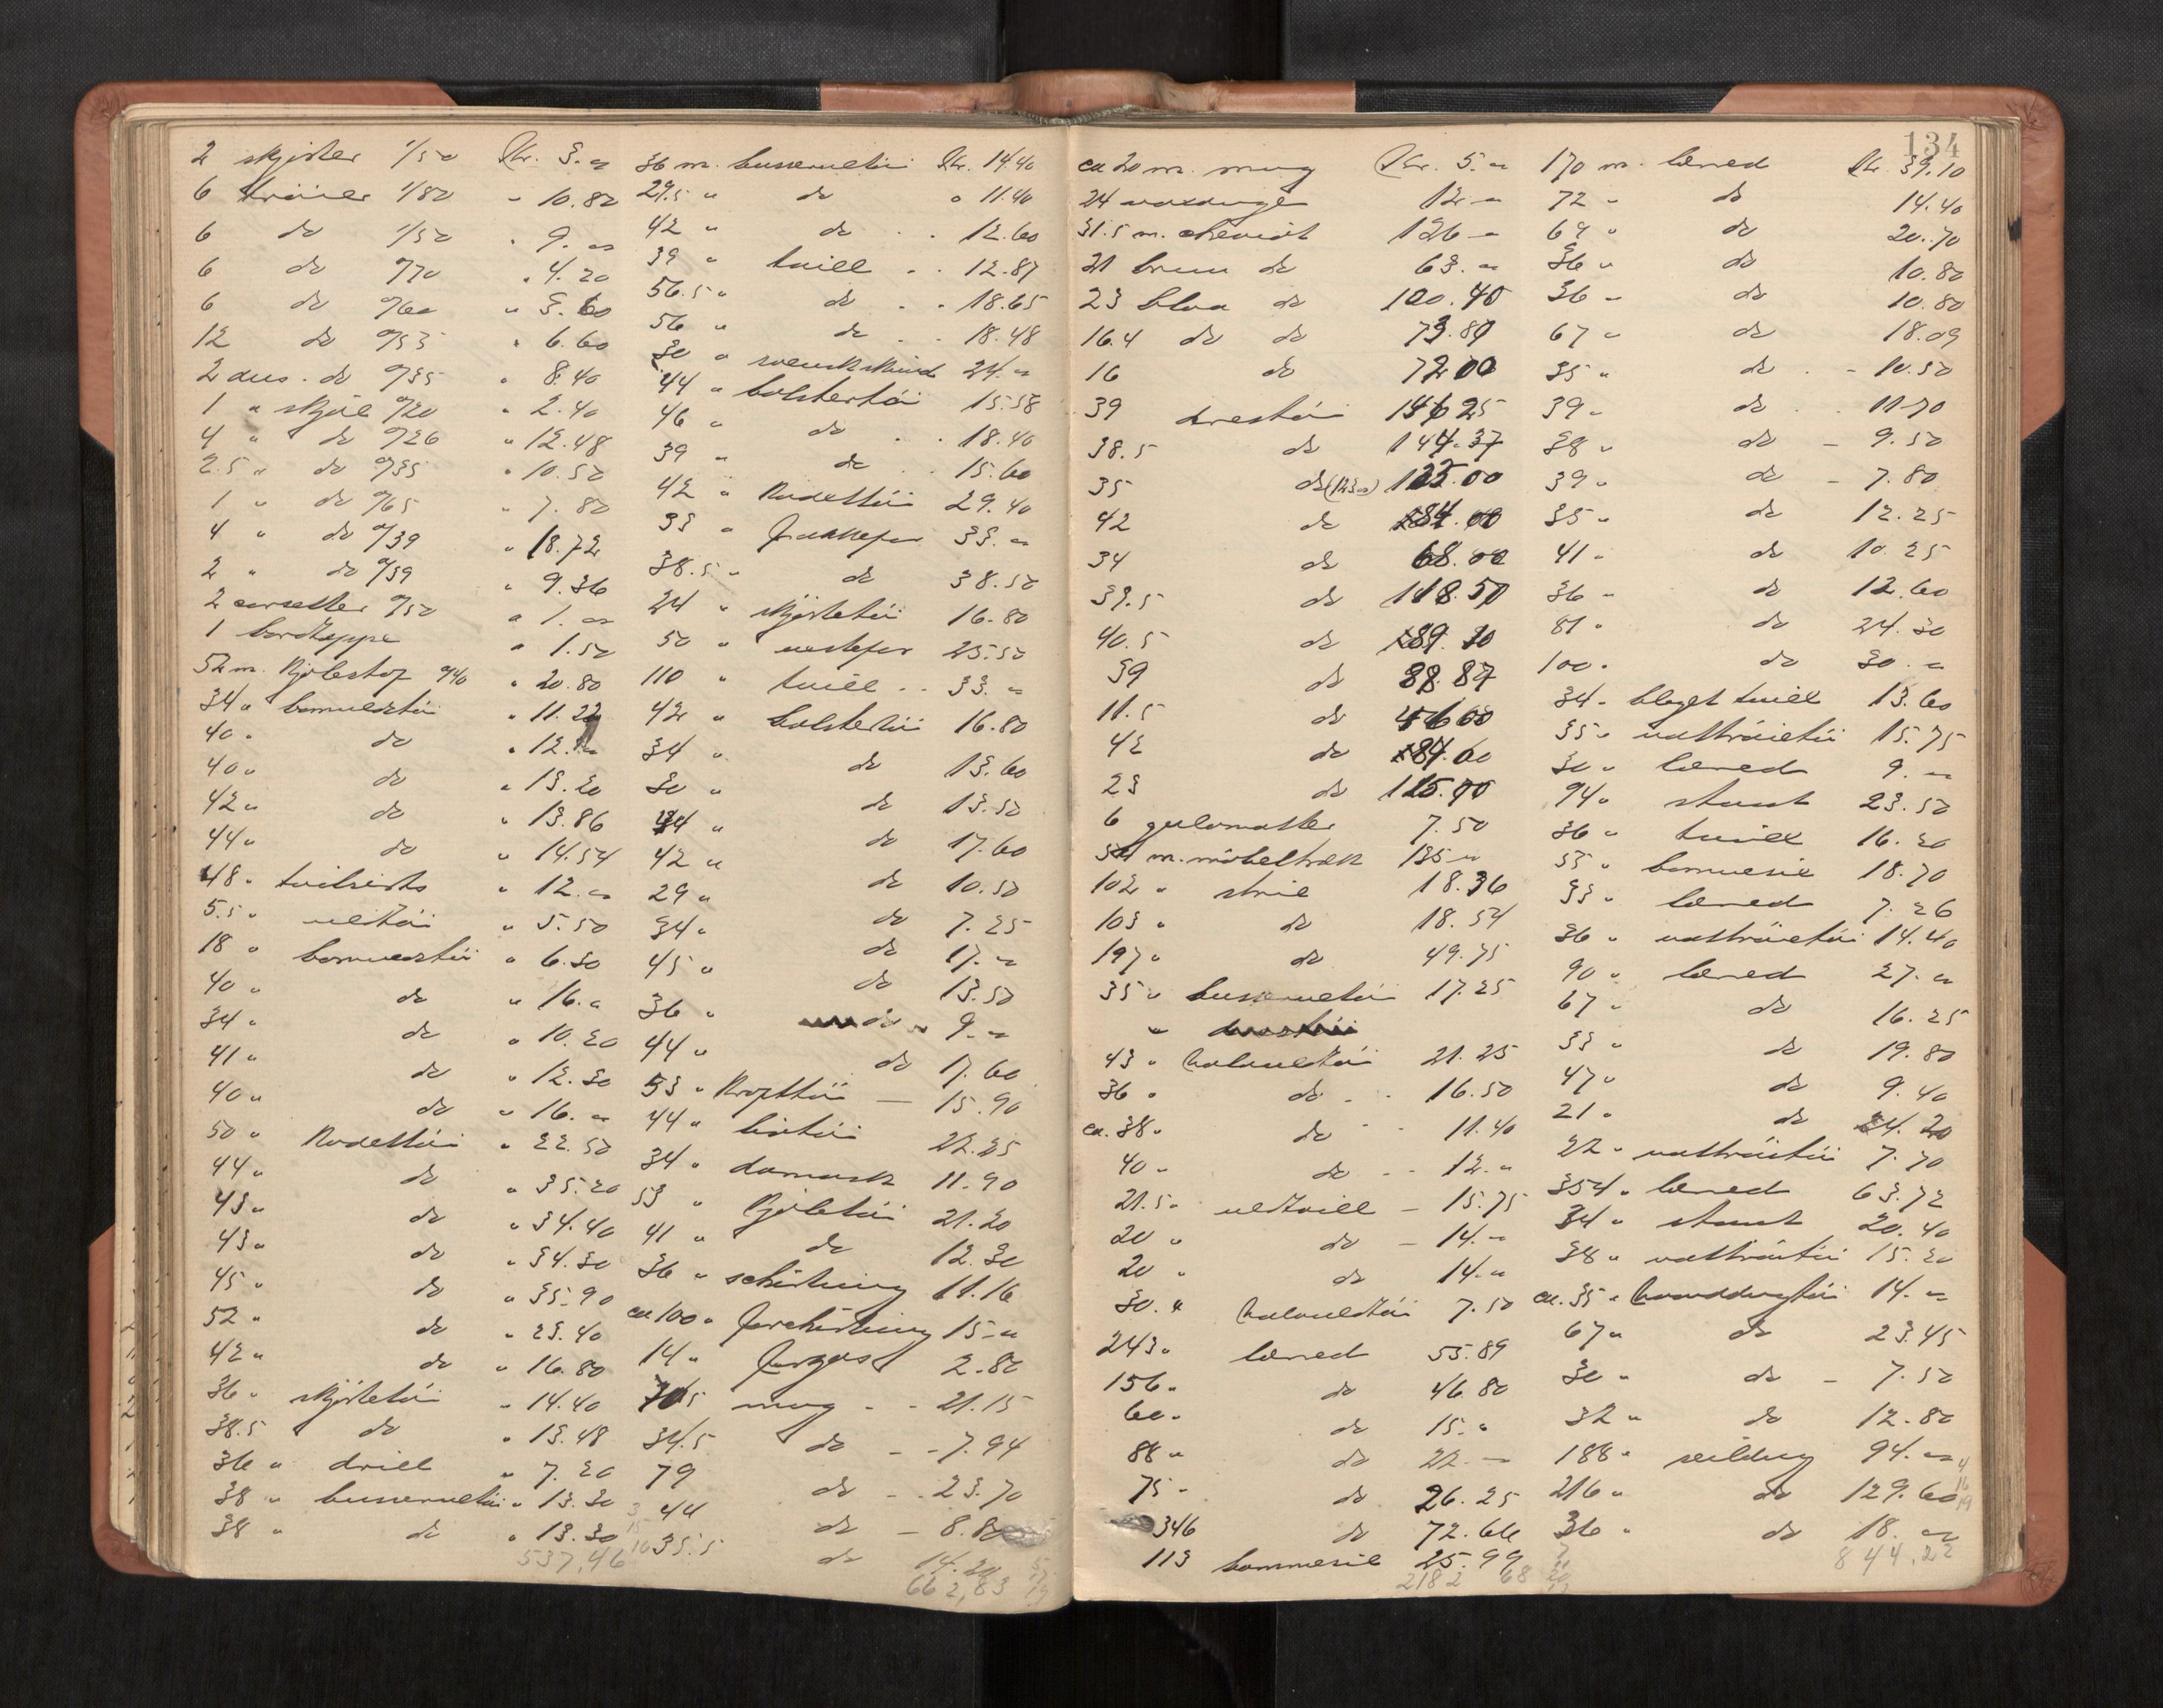 2 skjorter 1/50 Kr. 3.-
6 tröier 1/80 - 10.80
6 do 1/50 " 9.-
6 do 0/70 " 4.20
6 do 0/60 " 3.60
12 do 0/55 " 6.60
2 dus. do 0/35 " 8.40
1 " skjöl 0/20 " 2.40
4 " do 0/26 " 12.48
2.5 " do 0/35 " 10.50
1 " do 0/65 " 7.80
4 " do 0/39 " 18.72
2 " do 0/39 " 9.36
2 corsetter 0/50 " 1.-
1 bordteppe " 1.50
52 m. kjolestof 0/40 " 20.80
34 " bomuldstöi " 11.22
40 " do " 12.-
40 " do " 13.20
42 " do " 13.86
44 " do " 14.54
48 " " 12.-
5.5 " uldtöi " 5.50
18 " bomuldstöi " 6.30
40 " do " 16.-
34 " do " 10.20
41 " do " 12.30
40 " do " 16.-
50 " Kadettöi " 22.50
44 " do " 35.20
43 " do " 34.40
43 " do " 34.30
45 " do " 35.90
52 " do " 23.40
42 " do " 16.80
36 " skjortetöi " 14.40
38.5 do " 13.48
36 " drill " 7.20
38 " busserultöi " 13.30
38 " do " 13.30
537,46
36 m. busserultöi Kr. 14.40
29.5 " do " 11.40
42 " do " 12.60
39 " tvill " 12.87
56.5 " do " 18.65
56 " do " 18.48
30 " svenskskind 24.-
44 " bolstertöi 15.58
46 " do 18.40
39 " do 15.60
42 " Kadettöi 29.40
33 " Frakkefor 33.-
38.5 " do 38.50
24 " skjortetöi 16.80
50 " vestefor 25.50
110 " tvill 33.-
42 " bolstertöi 16.80
34 " do 13.60
30 " do 13.50
44 " do 17.60
42 " do 10.50
29 " do 7.25
34 " do 17.-
45 " do 13.50
36 " do 9.-
44 " do 17.60
53 " Kroptöi - 15.90
44 " listöi 22.25
34 " damask 11.90
53 " Kjoletöi 21.20
41 " do 12.30
36 " schirting 11.16
ca 100 " forschirting 15.-
14 " Forgas 2.80
mug - 21.15
34.5 do - 7.94
79 do - 23.70
44 do - 8.80
35.5 do 14.20
662,83
134
ca 20 m. mug Kr. 5.-
24 voxduge 12.-
31.5 m. cheviot 126.-
21 brun do 63.-
23 blaa do 100.40
16.4 do do 73.80
16 do 72.00
39 drestöi 146 25
38.5 do 144.37
35 do (123.-) 122.00
42 do 84.00
34 do 68.00
39.5 do 118.50
40.5 do 89.10
39 do 88.87
11.5 do 46.00
42 do 84.00
23 do 115.00
6 gulvmatter 7.50
54 m. möbeltræk 135.-
102 " strie 18.36
103 " do 18.54
197 " do 49.75
35 " busserultöi 17.25
43 " halvuldtöi 21.25
36 " do 16.50
ca. 38 " do 11.40
40 " do 12.-
21.5 " uldtvill - 15.75
20 " do - 14.-
20 " do 14.-
30 " halvuldtöi 7.50
243 " lerred 55.89
156 " do 46.80
60 " do 15.-
88 " do 22.-
75 " do 26.25
346 do 72.66
113 bommesie 25.99
2182 68
170 m. lerred Kr. 39.10
72 " do 14.40
69 " do 20.70
36 " do 10.80
36 " do 10.80
67 " do 18.09
35 " do - 10.50
39 " do 11.70
38 " do - 9.50
39 " do - 7.80
35 " do 12.25
41 " do 10.25
36 " do 12.60
81 " do 24.30
100 " do 30.-
34 " bleget tvill 13.60
35 " nattröietöi 15.75
30 " lerred 9.-
94 " stout 23.50
36 " tvill 16.20
55 " bommesie 18.70
33 " lerred 7.26
36 " nattröietöi 14.40
90 " lerred 27.-
67 " do 16.25
33 " do 19.80
47 " do 9.40
21 " do 20
22 " nattröietöi 7.70
354 " lerred 63.72
34 " stout 20.40
38 " nattröietöi 15.20
ca. 35 " haanddugtöi 14.-
67 " do 23.45
30 " do - 7.50
32 " do 12.80
188 " seildug 94.-
216 " do 129.60
36 " do 18.-
844,22